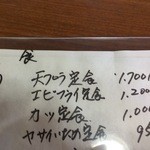 食
天プラ定食 1.700
エビフライ定食 1.200
カツ定食 1.000
ヤサイいため定食 95